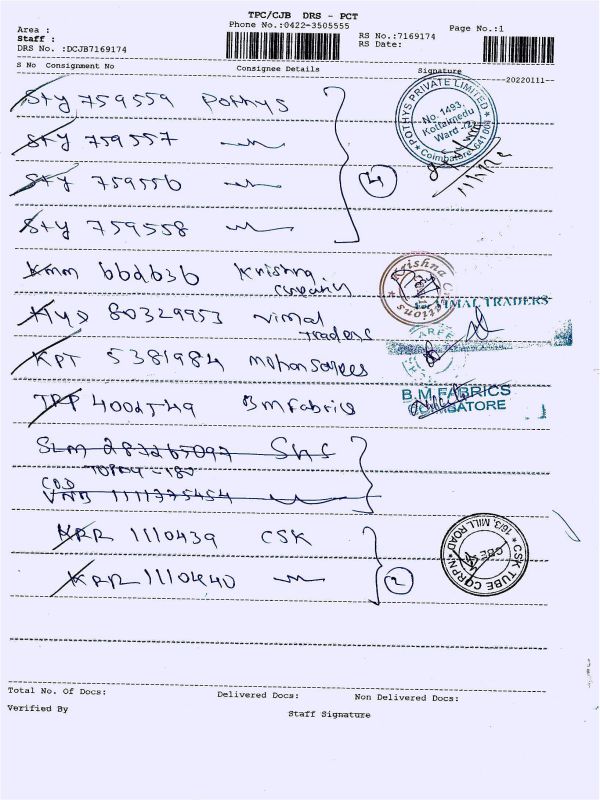 TPC/CJB DRS - PCT
Phone No.:0422-3505555
Area :
Staff :
DRS No. :DCJB7169174
RS No.:7169174
RS Date:
Page No.:1
S No Consignment No Consignee Details Signature
20220111
Sty 759559 Pothys
Sty 759557
Sty 759556
Sty 759558
4
POTHYS PRIVATE LIMITED
No. 1493,
Ward
Coimbatore - 641 001
Kmm 666636 Krishna
Krishna Creations
Hyd 80329953 Vimal
Traders
For VIMAL TRADERS
KPT 5381984 Mohan Sarees
TRP 4002549 BM Fabrics
B.M.FABRICS
COIMBATORE
SLM 283265097 SHS
TOPAY - 180
COD
VNB 1111375454
KRR 1110439 CSK
KRR 1110440
2
CSK TUBE CORPN
16/3, MILL ROAD
CBE
Total No. Of Docs: Delivered Docs: Non Delivered Docs:
Verified By Staff Signature